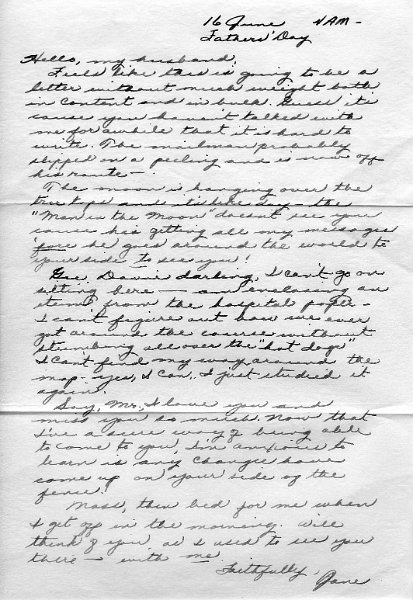 16 June 1 AM -
Fathers' Day
Hello, my husband,
Feels like this is going to be a
letter without much weight both
in content and in bulk. Guess it's
cause you haven't talked with
me for awhile that it is hard to
write. The mailman probably
slipped on a peeling and is now off
his route -
The moon is hanging over the
tree tops and its like day - the
"Man in the Moon" doesn't see you
cause he's getting all my messages
'fore he goes around the world to
your side to see you!
Gee, darling, I can't go on
sitting here - am enclosing an
item from the hospital paper -
I can't figure out how we ever
got around the course without
stumbling all over the "hot dogs"
I can't find my way around the
map - yes, I can, I just studied it
again.
Say, Mr. I love you and
miss you so much. Now that
I've a sure way of being able
to come to you, I'm anxious to
learn is any changes have
come up on your side of the
fence!
Mass, then bed for me when
I get off in the morning. Will
think of you as I used to see you
there - with me
Faithfully,
Jane